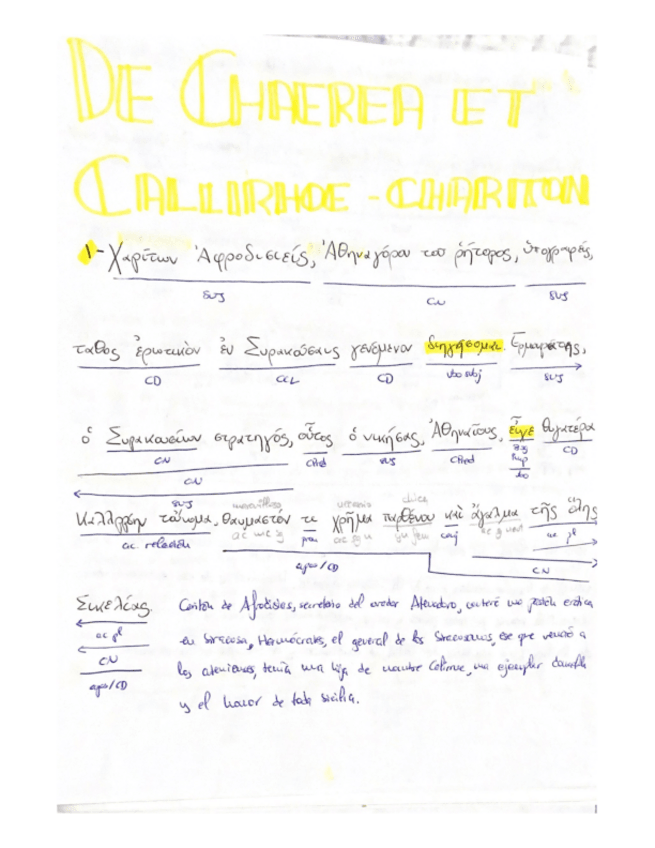 DE CHAEREA ET
CALLIRHOE - CHARITON
1- Χαρίτων Ἀφροδισιεύς, Ἀθηναγόρου του ῥήτορος, ὑπογραφεύς,
suj CN suj
παθος ἐρωτικὸν ἐν Συρακούσαις γενόμενον διηγήσομαι. Ἑρμοκράτης,
CD CCL CD vbo suj
ὁ Συρακουσίων στρατηγός, οὗτος ὁ νικήσας, Ἀθηναίους, εἶχε θυγατέρα
CN suj CD
CN vbo
suj
Καλλιρρόην τοὔνομα, θαυμαστόν τι χρῆμα παρθένου καὶ ἄγαλμα τῆς ὅλης
ac. relación conj
apos/CD CN
Σικελίας.
CN
apos/CD
Caritón de Afrodisias, secretario del orador Atenadoro, contaré una pasión erótica
en Siracusa, Hermócrates, el general de los Siracusanos, ese que venció a
los atenienses, tenía una hija de nombre Calirroe, un ejemplar
y el honor de toda Sicilia.